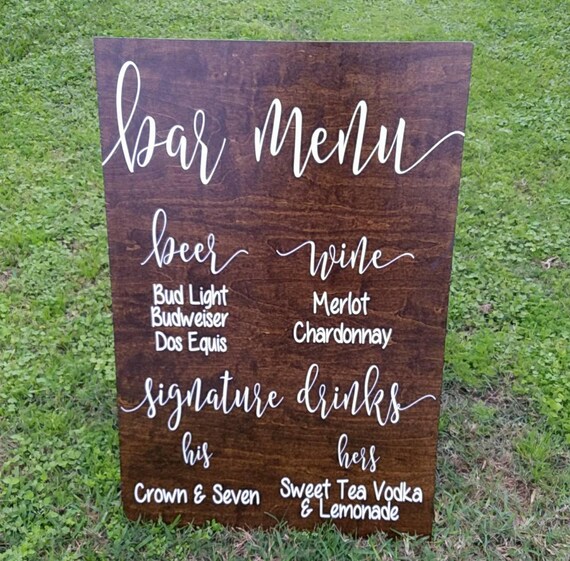 bar menu
beer
Bud Light
Budweiser
Dos Equis
wine
Merlot
Chardonnay
signature drinks
his
Crown & Seven
hers
Sweet Tea Vodka
& Lemonade